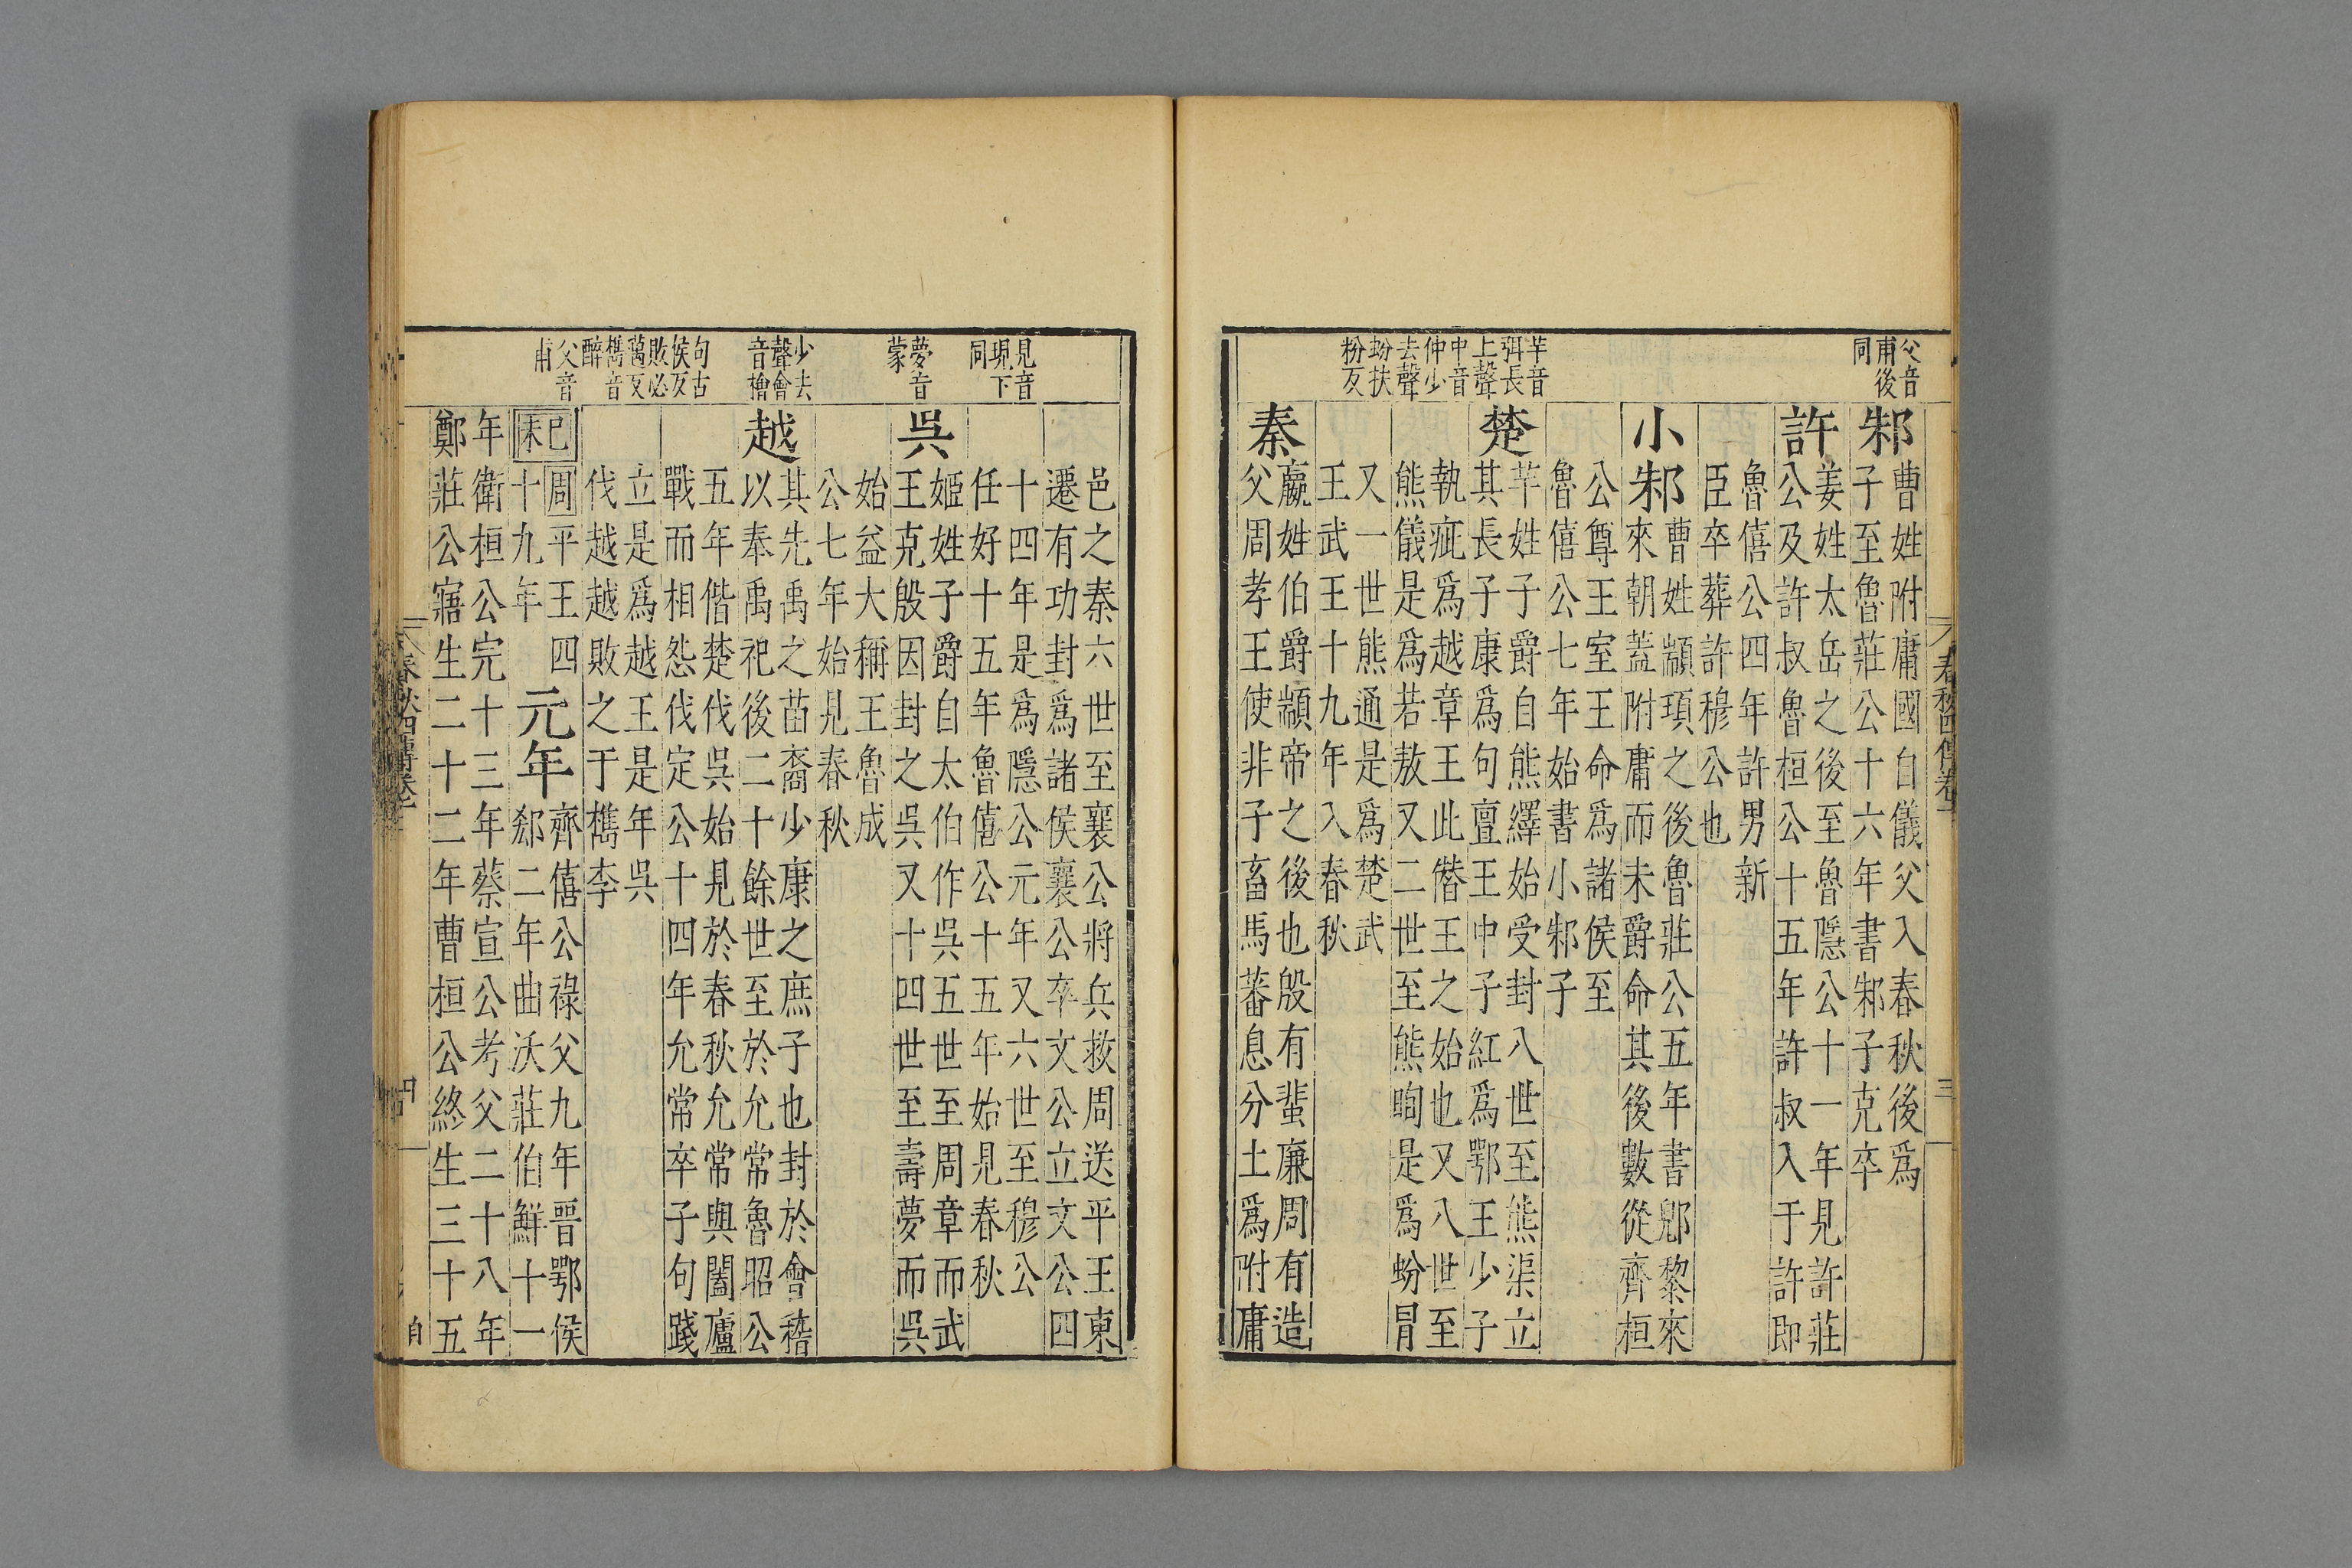 父音
甫後
同
邾
曹姓附庸國自儀父入春秋後為
子至魯莊公十六年書邾子克卒
許
姜姓太岳之後至魯隱公十一年見許莊
公及許叔魯桓公十五年許叔入于許即
魯僖公四年許男新
臣卒葬許穆公也
小邾
曹姓顓頊之後魯莊公五年書郳黎來
來朝蓋附庸而未爵命其後數從齊桓
公尊王室王命為諸侯至
魯僖公七年始書小邾子
芊音
弭長
上聲
中音
仲少
去聲
蚡扶
粉反
楚
芊姓子爵自熊繹始受封八世至熊渠立
其長子康為句亶王中子紅為鄂王少子
執疵為越章王此僭王之始也又八世至
熊儀是為若敖又二世至熊眴是為蚡冒
又一世熊通是為楚武
王武王十九年入春秋
秦
嬴姓伯爵顓帝之後也殷有蜚廉周有造
父周孝王使非子畜馬蕃息分土為附庸
春秋四傳卷一
三
邑之秦六世至襄公將兵救周送平王東
遷有功封為諸侯襄公卒文公立文公四
見音
現下
同
十四年是為隱公元年又六世至穆公
任好十五年魯僖公十五年始見春秋
夢音
蒙
吳
姬姓子爵自太伯作吳五世至周章而武
王克殷因封之吳又十四世至壽夢而吳
始益大稱王魯成
公七年始見春秋
少去
聲會
音檜
越
其先禹之苗裔少康之庶子也封於會稽
以奉禹祀後二十餘世至於允常魯昭公
五年偕楚伐吳始見於春秋允常與闔廬
戰而相怨伐定公十四年允常卒子句踐
句古
侯反
敗必
萬反
檇音
醉
立是為越王是年吳
伐越越敗之于檇李
父音
甫
己未
周平王四
十九年
元年
齊僖公祿父九年晉鄂侯
郄二年曲沃莊伯鮮十一
年衛桓公完十三年蔡宣公考父二十八年
鄭莊公寤生二十二年曹桓公終生三十五
春秋四傳卷一
四